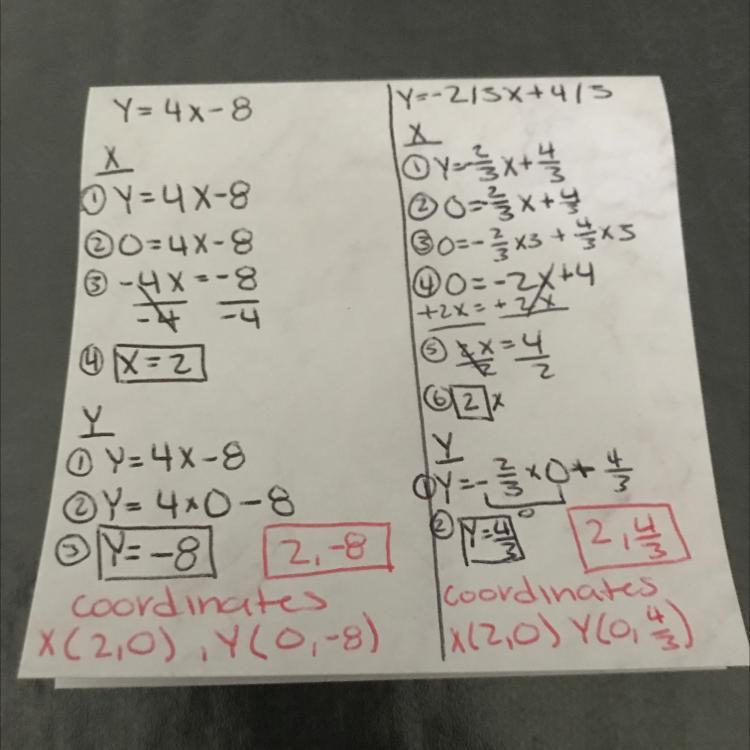 Y=4x-8
X
① Y=4x-8
② 0=4x-8
③ -4x=-8
-4 -4
④ x=2
Y
① Y=4x-8
② Y=4×0-8
③ Y=-8
2,-8
coordinates
X(2,0), Y(0,-8)
Y=-2/3x+4/3
X
① Y=-2/3x+4/3
② 0=-2/3x+4/3
③ 0=-2/3x3+4/3x3
④ 0=-2x+4
+2x=+2x
⑤ 2x=4
2 2
⑥ 2 x
Y
① Y=-2/3×0+4/3
0
② Y=4/3
2,4/3
coordinates
X(2,0) Y(0,4/3)